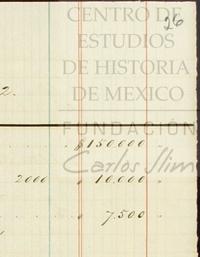 26
CENTRO DE
ESTUDIOS
DE HISTORIA
DE MEXICO
2.
FUNDACIÓN
$150.000
Carlos Slim
2000 " 10.000 "
" 7.500 "